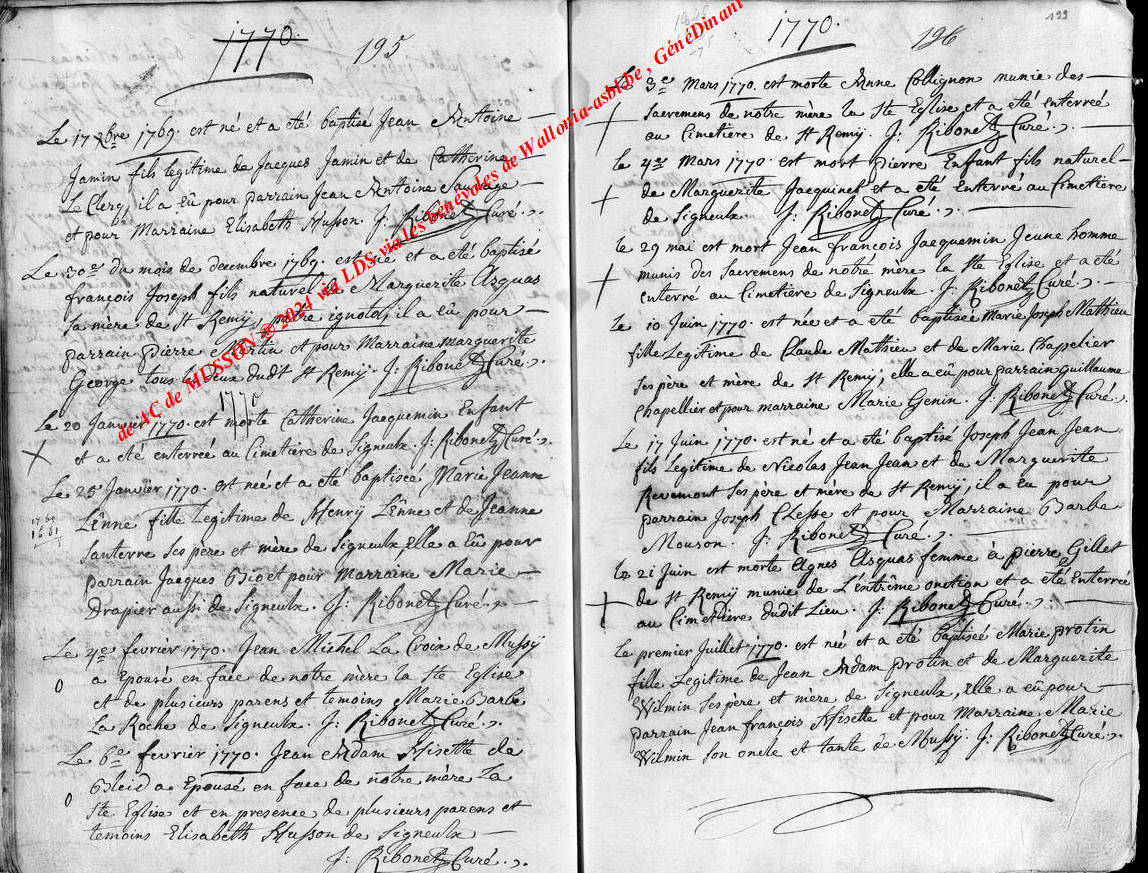 1770.
1770
195
Le 17 Xbre 1769. est né et a été baptisé Jean Antoine
Jamin fils legitime de Jacques Jamin et de Catherine
Le Clerq, il a Eû pour parrain Jean Antoine Sauvage
et pour Marraine Elisabeth Musson. J: Ribonet Curé.
Le 30er du mois de decembre 1769. est né et a été baptisé
françois Joseph fils naturel de Marguerite Asquas
sa mère de St Remÿ, pere ignoto, il a Eû pour
parrain pierre Martin et pour Marraine marguerite
George tous deux dudt St Remÿ. J: Ribonet Curé.
1770
Le 20 Janvier 1770. est morte Catherine Jacquemin Enfant
et a été enterreé au Cimetiere de Signeulx. J: Ribonet Curé.
Le 25 Janvier 1770. est née et a été baptisée Marie Jeanne
Lênne fille Legitime de Henrÿ Lênne et de Jeanne
santerre ses père et mère de Signeulx, Elle a Eû pour
parrain Jacques Bio et pour Marraine Marie
Drapier aussi de Signeulx. J: Ribonet Curé.
Le 4e fevrier 1770. Jean Michel La Croix de Mussÿ
a Epousé en face de notre mère la Ste Eglise
et de plusieurs parens et temoins Marie Barbe
La Roche de Signeulx. J: Ribonet Curé.
Le 6e fevrier 1770. Jean Adam Misette de
Bleid a Epousé en face de notre mère La
Ste Eglise et en presence de plusieurs parens et
temoins Elisabeth Musson de Signeulx
J: Ribonet Curé.
1770.
196
199
Le 3e Mars 1770. est morte Anne Collignon munie des
sacremens de notre mère la Ste Eglise et a été enterreé
au Cimetiere de St Remÿ. J: Ribonet Curé.
le 4er Mars 1770. est mort Pierre Enfant fils naturel
de Marguerite Jacquinet et a été Enterré au Cimetiere
de Signeulx. J: Ribonet Curé.
le 29 mai est mort Jean françois Jacquemin Jeune homme
munis des Sacremens de notre mere la Ste Eglise et a été
enterré au Cimetiere de Signeulx. J: Ribonet Curé.
Le 10 Juin 1770. est née et a été baptisée Marie Joseph Mathieu
fille Legitime de Claude Mathieu et de Marie Chapelier
ses père et mère de St Remÿ, elle a eû pour parrain Guillaume
Chapellier et pour marraine Marie Genin. J: Ribonet Curé.
Le 17 Juin 1770. est né et a été baptisé Joseph Jean Jean
fils Legitime de Nicolas Jean Jean et de Marguerite
Revemont ses père et mère de St Remÿ, il a Eu pour
parrain Joseph Clesse et pour Marraine Barbe
Mouson. J: Ribonet Curé.
le 21 Juin est morte Agnes Asquas femme à pierre Gillet
de St Remÿ munie de L'extrême onction et a été Enterreé
au Cimetiere dudit Lieu. J: Ribonet Curé.
Le premier Juillet 1770. est née et a été baptiseé Marie protin
fille Legitime de Jean Adam protin et de Marguerite
Wilmin ses père et mère de Signeulx, Elle a eû pour
parrain Jean françois Misette et pour Marraine Marie
Wilmin son oncle et tante de Mussÿ. J: Ribonet Curé.
de AC de MUSSON @ 2024 via LDS via les bénévoles de Wallonia-asbl.be , GénéDinant